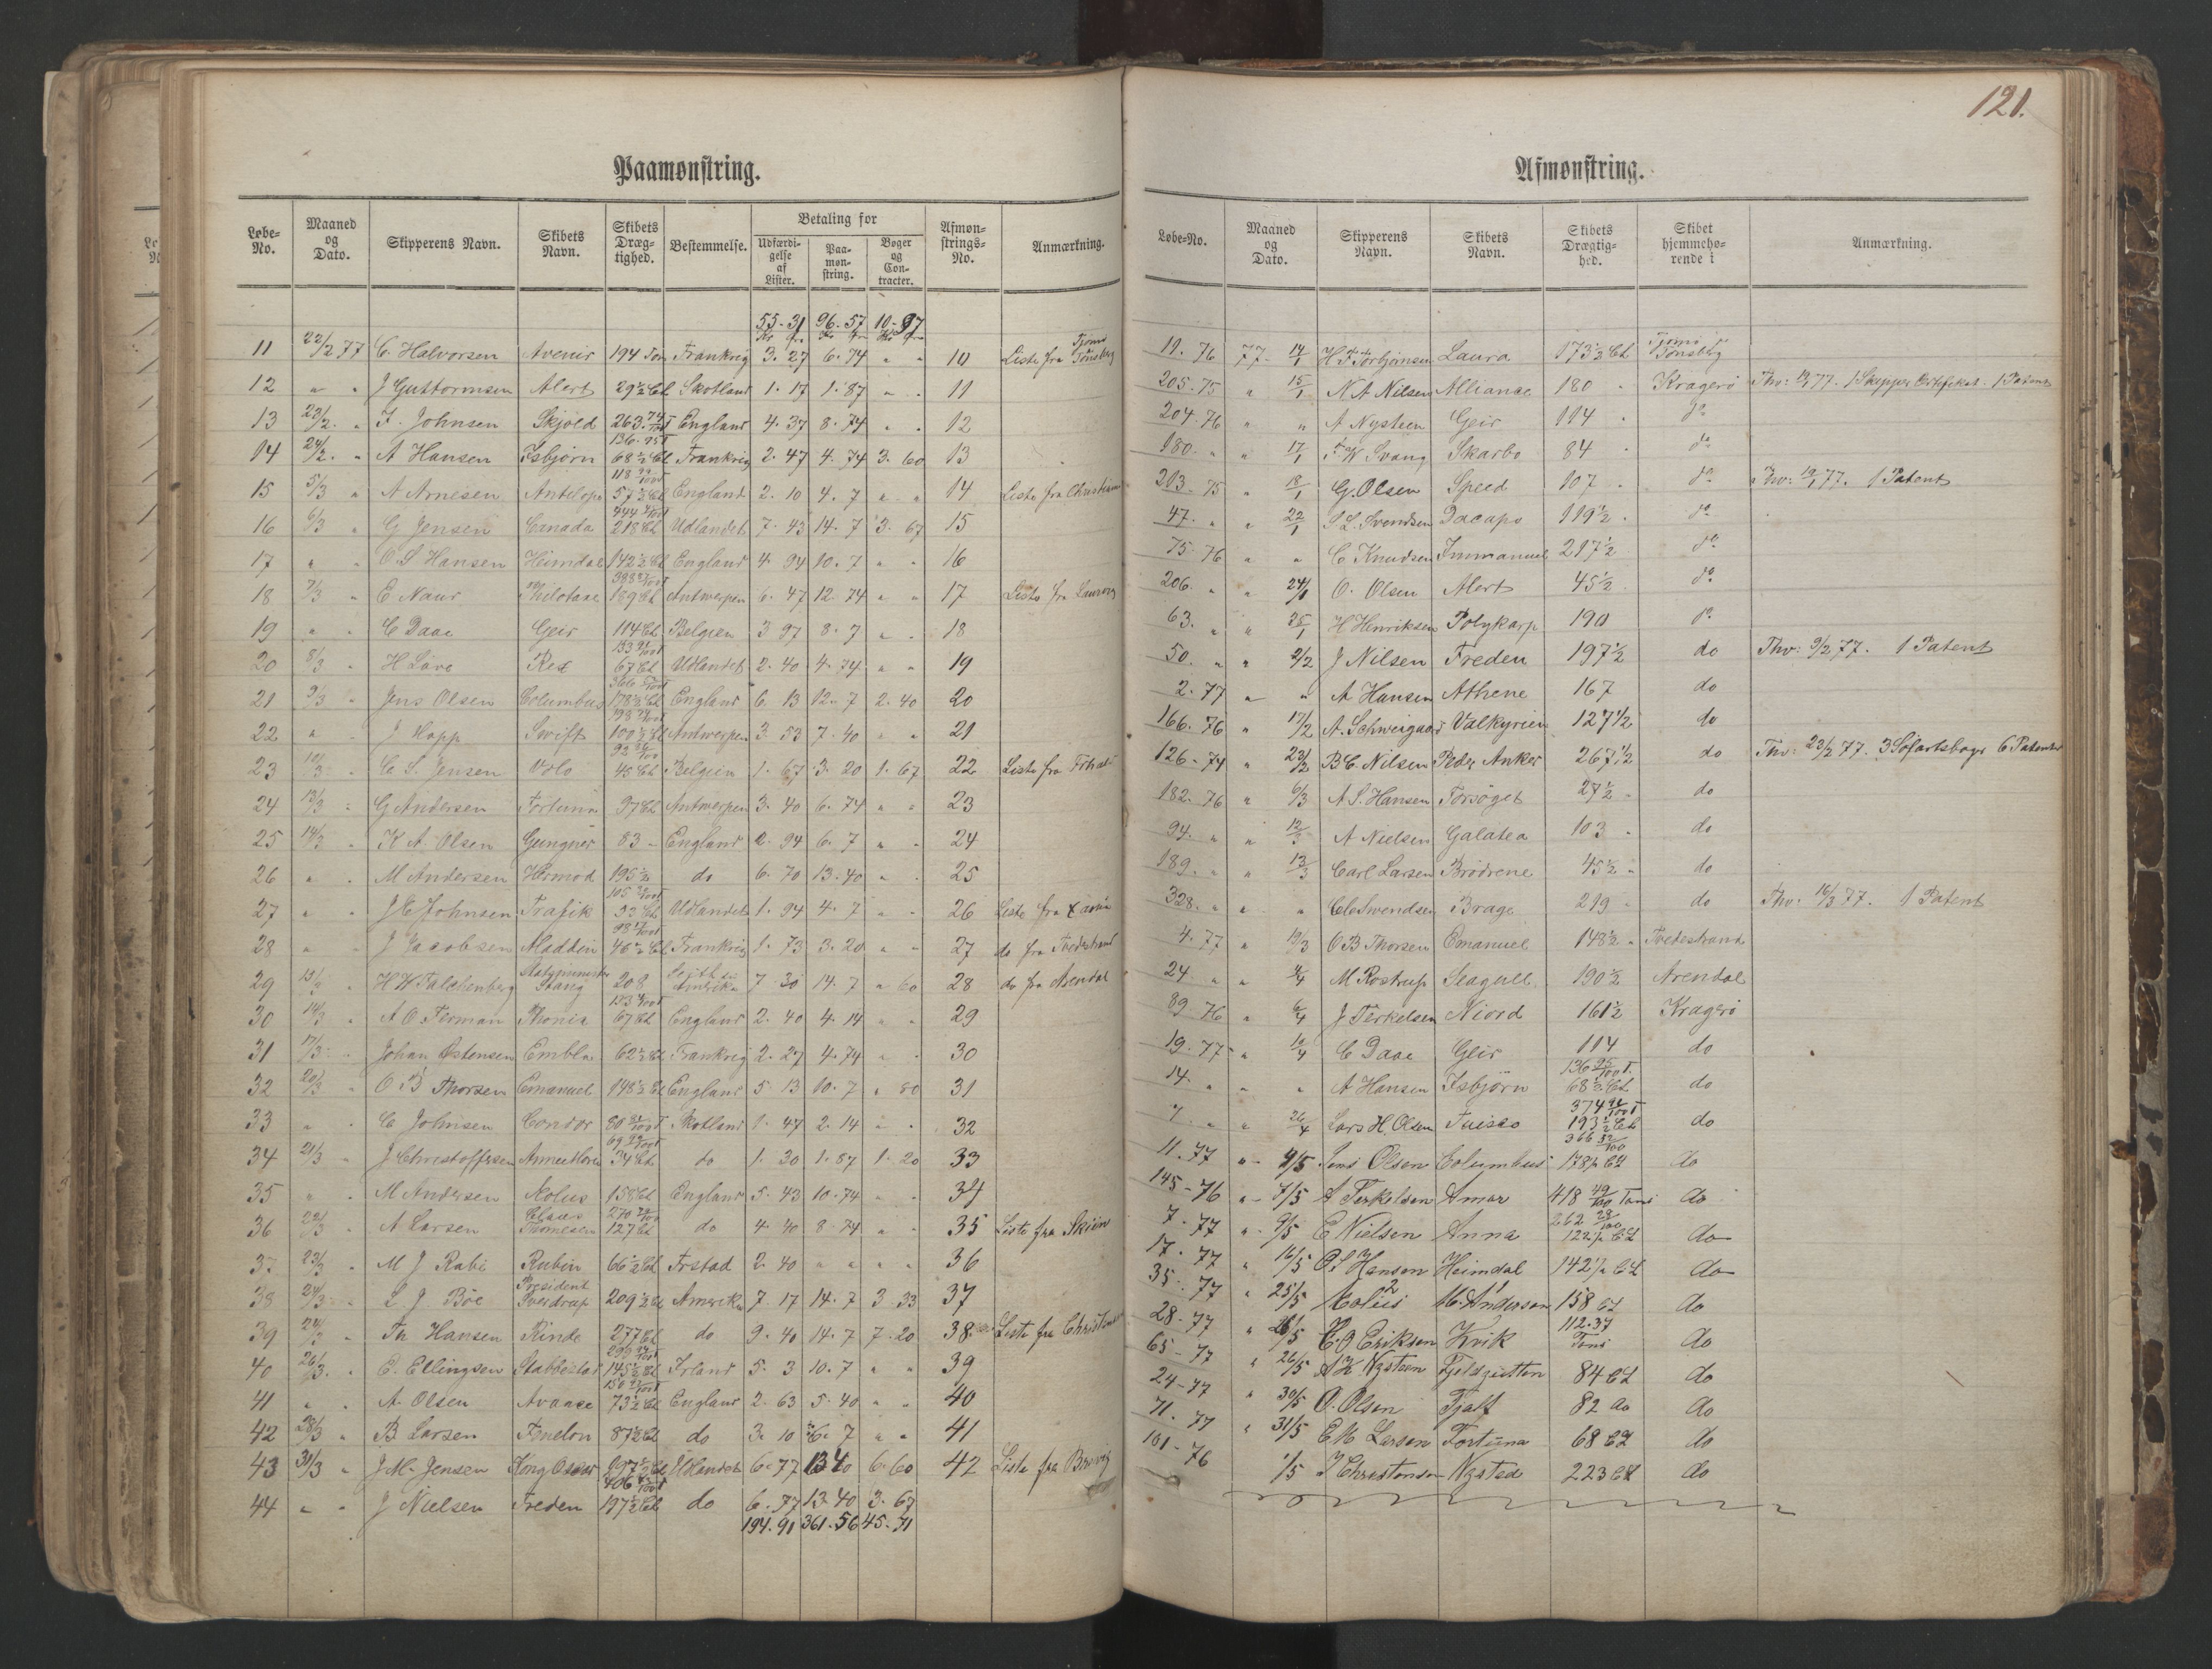 121.
Paamønstring.
Løbe-No. Maaned og Dato. Skipperens Navn. Skibets Navn. Skibets Dræg-tighed. Bestemmelse. Betaling for Udfærdi-gelse af Lister. Paa-møn-string. Bøger og Con-tracter. Afmøn-strings-No. Anmærkning.
55.31 96.57 10.37
11 22/2 77 C. Halvorsen Avenir 194 Ton Frankrig 3.27 6.74 " " 10 Liste fra Tjømø Tønsberg
12 " " J Guttormsen Alert 29½ Cl Skotland 1.17 1.87 " . 11
13 23/2 " F. Johnsen Skjold 263 England 4.37 8.74 " . 12
14 24/2 " A Hansen Isbjørn 136.95 T 68½ Cl Frankrig 2.47 4.74 3.60 13
15 5/3 " A Arnesen Antelope 57½ Cl England 2.10 4.7 " " 14 Liste fra
16 6/3 " G Jensen Canada 218 Cl Udlandet 7.43 14.7 3.67 15
17 " . O.S Hansen Heimdal 142½ Cl England 4.94 10.7 " " 16
18 7/3 " E Naur 189 Cl Antwerpen 6.47 12.74 " " 17 Liste fra
19 " . C Daae Geir 114 Cl Belgien 3 97 8.7 " . 18
20 8/3 " H Löve Rex 67 Cl Udlandet 2.40 4.74 " " 19
21 9/3 " Jens Olsen Columbus 178½ Cl England 6.13 12.7 2.40 20
22 " - J Hopp Swift 100½ Cl Antwerpen 3.53 7.40 " " 21
23 C. S. Jensen 45 Cl Belgien 1.67 3.20 1.67 22 Liste fra
24 13/3 G Andersen Fortuna 97 Cl Antwerpen 3.40 6.74 " " 23
25 14/3 . K A. Olsen Gungner 83 - England 2.94 6.7 " . 24
26 " . M Andersen Hermod 195½ do 6.70 13.40 " . 25
27 " . J C Johnsen Trafik 53 Cl Udlandet 1.94 4.7 " - 26 Liste fra
28 " J Jacobsen Aladdin 46½ Cl Frankrig 1.73 3.20 " " 27 do fra Tvedestrand
29 13/3 H H Falchenberg Statsminister Stang 208 Amerika 7.30 14.7 " 60 28 do fra Arendal
30 14/3 " A O. Ferman 67 Cl England 2.40 4.14 " - 29
31 17/3 Johan Østensen Embla 62½ Cl Frankrig 2.27 4.74 " . 30
32 20/3 " O B Thorsen Emanuel 148½ Cl England 5.13 10.7 " 80 31
33 " . C Johnsen Condor 80 T Skotland 1.47 2.14 " . 32
34 21/3 J Christoffersen 34 Cl do 1.30 1.87 1.20 33
35 " . M Andersen Æolus 158 Cl England 5.43 10.74 " . 34
36 22/3 A Larsen Claus Thomesen 127 Cl do 4.40 8.74 " . 35 Liste fra Skien
37 23/3 . M J Rabe Rubin 66½ Cl 2.40 " " " " 36
38 24/3 L J Böe President Sverdrup 209½ Cl Amerika 7.17 14.7 3.33 37
39 24/3 " Th Hansen Rinde 277 Cl do 9.40 14.7 7.20 38 Liste fra
40 26/3 . E. Ellingsen 145½ Cl Irland 5.3 10.7 " " 39
41 " . A. Olsen Avance 73½ Cl England 2.63 5.40 " " 40
42 28/3 " B Larsen Fenelon 87½ Cl do 3.10 6.7 " " 41
43 31/3 " J M. Jensen Kong Oscar 197½ Cl Udlandet 6.77 13.40 6.60 42 Liste fra Brevig
44 " " J Nielsen Freden 197½ Cl do 6.77 13.40 3.67
194.91 361.56 45.71
Afmønstring.
Løbe-No. Maaned og Dato. Skipperens Navn. Skibets Navn. Skibets Drægtig-hed. Skibet hjemmehø-rende i Anmærkning.
11.76 77 14/1 H. Torbjørnsen Laura 173½ Cl Tjømø pr Tønsberg
205.75 " 15/1 N A Nilsen Alliance 180 Kragerö 77. 1 Skipper Certifikat. 1 Patent
204.76 " " A Nysteen Geir 114 . do
180. " " 17/1 F W Svang Skarbo 84 . do
203.75 " 18/1 G. Olsen Speed 107 . do 77. 1 Patent
47. " " 22/1 S L. Svendsen Dacapo 119½ . do
75.76 " " C Knudsen Immanuel 217½ do
206. " " 24/1 O. Olsen Alert 45½ . do
63. " " 25/1 H Henriksen Polykarp 190 do
50. " " 2/2 J Nilsen Freden 197½ do Thv: 9/2 77. 1 Patent
2.77 " " A Hansen Athene 167 do
166.76 " 17/2 A. Schweigaard Valkyrien 127½ do
126-74 " 23/2 B C. Nilsen Peder Anker 267½ do Thv: 23/2 77. 3 Söfartsboger 6 Patenter
182.76 " 6/3 A S. Hansen Forsöget 27½ - do
94. " " 12/3 A Nielsen Galatea 103 . do
189. " " 13/3 Carl Larsen Brödrene 45½ " do
328. " " " Ole Svendsen Brage 219 - do Thv: 16/3 77. 1 Patent
4.77 " 19/3 O B Thorsen Emanuel 148½ " Tvedestrand
24 " " 4/4 M Rostrup Seagull 190½ Arendal
89 76 " 6/4 J Terkelsen Niord 161½ Kragerö
19.77 " 10/4 C Daae Geir 114 do
14. " " " A Hansen Isbjörn 136 95/100 T. 68½ Cl do
7. " " 26/4 Lars H. Olsen Tuisco 374 T 193½ Cl do
11.77 " 4/5 Jens Olsen Columbus 366 52/100 178½ Cl do
145-76 " 7/5 A Terkelsen Amor 418 49/100 Tons do
7.77 " 9/5 E Nielsen Anna 262 28/100 122½ Cl do
17.77 " 16/5 O S Hansen Heimdal 142½ Cl do
35.77 " 25/5 Æolus 2 M. Anderson 1 158 Cl do
28-77 " 26/5 C. O Eriksen Kvik 112.37 Tons do
65-77 " 26/5 A K Nysteen Fjeldgutten 84 Cl do
24-77 " 30/5 O. Olsen Tjalf 82 do do
71.77 " 31/5 E M Larsen Fortuna 68 Cl do
101-76 1/5 J Christensen Nysted 223 Cl do